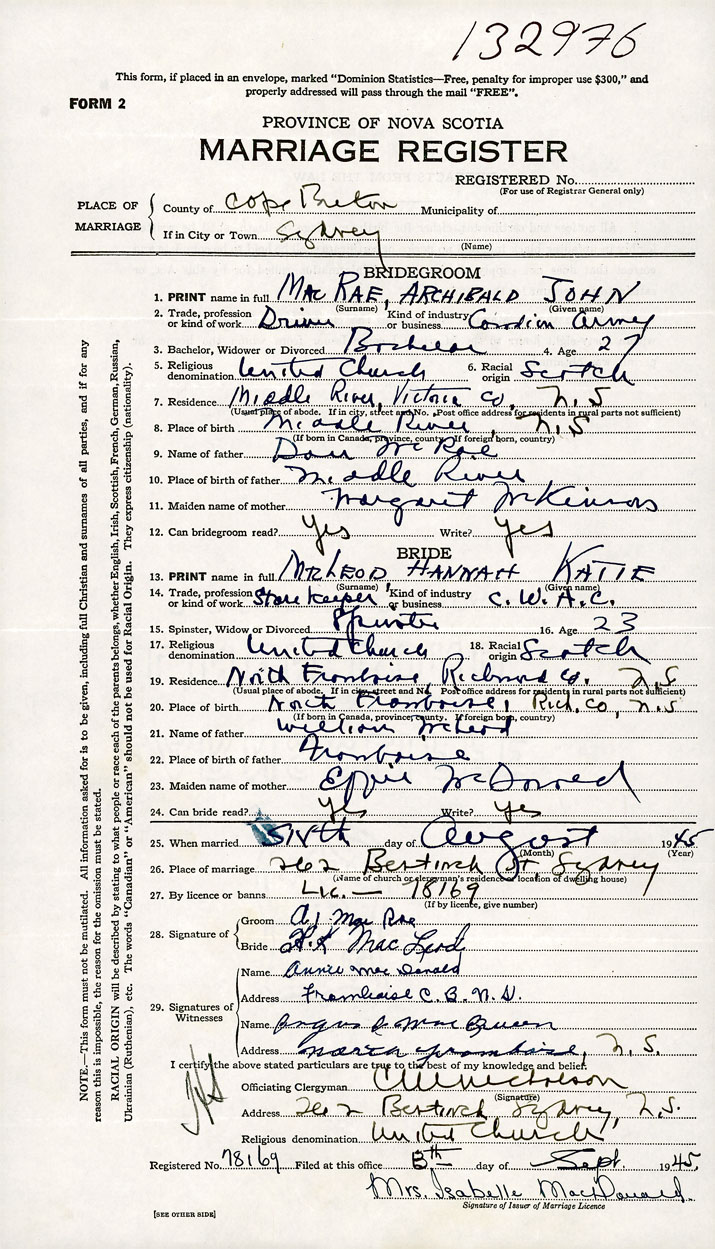 132976
This form, if placed in an envelope, marked "Dominion Statistics—Free, penalty for improper use $300," and
properly addressed will pass through the mail "FREE".
FORM 2
PROVINCE OF NOVA SCOTIA
MARRIAGE REGISTER
REGISTERED No.
(For use of Registrar General only)
PLACE OF MARRIAGE
County of Cape Breton Municipality of
If in City or Town Sydney
(Name)
BRIDEGROOM
1. PRINT name in full MacRAE, ARCHIBALD JOHN
(Surname) (Given name)
2. Trade, profession or kind of work Driver Kind of industry or business Canadian Army
3. Bachelor, Widower or Divorced Bachelor 4. Age 27
5. Religious denomination United Church 6. Racial origin Scotch
7. Residence Middle River, Victoria Co, N.S
(Usual place of abode. If in city, street and No. Post office address for residents in rural parts not sufficient)
8. Place of birth Middle River, N.S
(If born in Canada, province, county. If foreign born, country)
9. Name of father Dan McRae
10. Place of birth of father Middle River
11. Maiden name of mother Margaret McKinnon
12. Can bridegroom read? Yes Write? yes
BRIDE
13. PRINT name in full McLEOD HANNAH KATIE
(Surname) (Given name)
14. Trade, profession or kind of work Storekeeper Kind of industry or business C.W.A.C.
15. Spinster, Widow or Divorced Spinster 16. Age 23
17. Religious denomination United Church 18. Racial origin Scotch
19. Residence North Framboise, Richmond Co. N.S
(Usual place of abode. If in city, street and No. Post office address for residents in rural parts not sufficient)
20. Place of birth North Framboise, Rich. Co, N.S
(If born in Canada, province, county. If foreign born, country)
21. Name of father William McLeod
22. Place of birth of father Framboise
23. Maiden name of mother Effie McDonald
24. Can bride read? yes Write? yes
25. When married Sixth day of August 1945
(Month) (Year)
26. Place of marriage 262 St, Sydney
(Name of church or clergyman's residence or location of dwelling house)
27. By licence or banns Lic. — 78169
(If by licence, give number)
28. Signature of
Groom A J MacRae
Bride H.K MacLeod
29. Signatures of Witnesses
Name Annie MacDonald
Address Framboise C.B. N.S.
Name Angus MacQueen
Address North Framboise, N.S.
I certify the above stated particulars are true to the best of my knowledge and belief.
Officiating Clergyman Nicholson
(Signature)
Address 262 Sydney, N.S.
Religious denomination United Church
Registered No. 78169 Filed at this office 8th day of Sept. 1945.
Mrs. Isabelle MacDonald.
Signature of Issuer of Marriage Licence
[SEE OTHER SIDE]
NOTE.—This form must not be mutilated. All information asked for is to be given, including full Christian and surnames of all parties, and if for any
reason this is impossible, the reason for the omission must be stated.
RACIAL ORIGIN will be described by stating to what people or race each of the parents belongs, whether English, Irish, Scottish, French, German, Russian,
Ukrainian (Ruthenian), etc. The words "Canadian" or "American" should not be used for Racial Origin. They express citizenship (nationality).